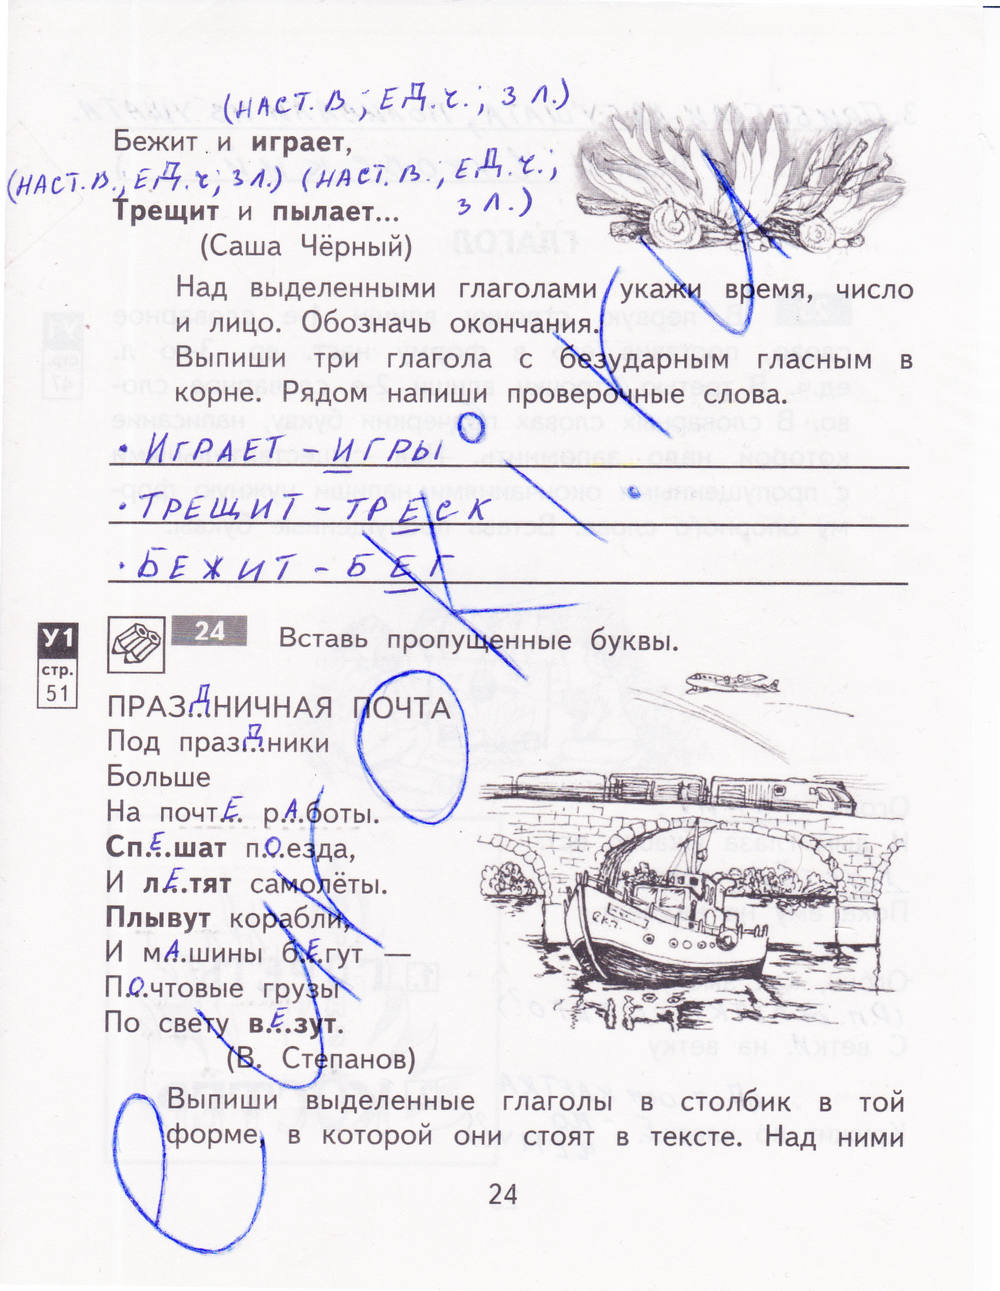 (НАСТ.В., ЕД.Ч.; 3 Л.)
Бежит и играет,
(НАСТ.В., ЕД.Ч; 3 Л.) (НАСТ.В., ЕД.Ч.;
3 Л.)
Трещит и пылает...
(Саша Чёрный)
Над выделенными глаголами укажи время, число
и лицо. Обозначь окончания.
Выпиши три глагола с безударным гласным в
корне. Рядом напиши проверочные слова.
• ИГРАЕТ - ИГРЫ
• ТРЕЩИТ - ТРЕСК
• БЕЖИТ - БЕГ
У1
стр.
51
24
Вставь пропущенные буквы.
ПРАЗДНИЧНАЯ ПОЧТА
Под праздники
Больше
На почтЕ рАботы.
СпЕшат пОезда,
И лЕтят самолёты.
Плывут корабли,
И мАшины бЕгут —
ПОчтовые грузы
По свету вЕзут.
(В. Степанов)
Выпиши выделенные глаголы в столбик в той
форме, в которой они стоят в тексте. Над ними
24